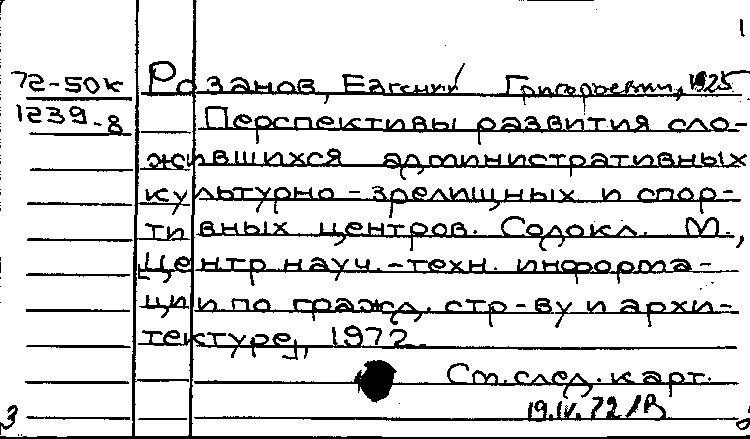 1
72-50к Розанов, Евгений Григорьевич, 1925
1239-8 Перспективы развития сло-
жившихся административных
культурно-зрелищных и спор-
тивных центров. Содокл. М.,
[Центр науч.-техн. информа-
ции по гражд. стр-ву и архи-
тектуре], 1972.
См. след. карт.
19.IV.72
3